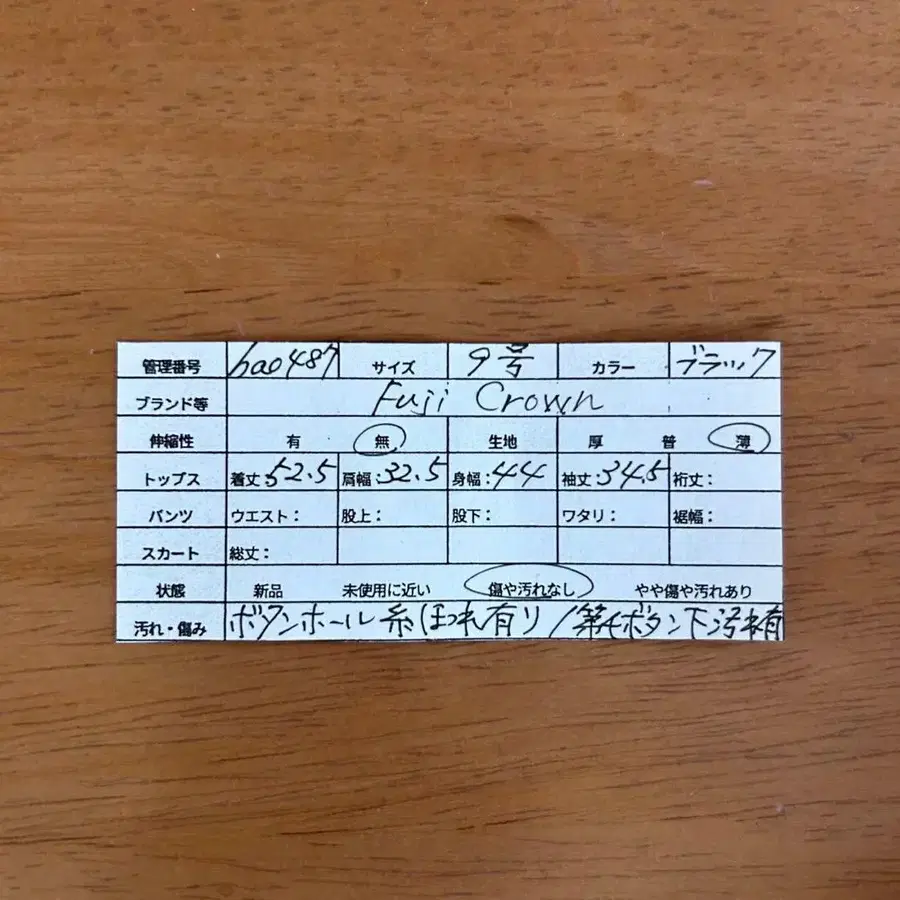 管理番号 hao487 サイズ 9号 カラー ブラック
ブランド等 Fuji Crown
伸縮性 有 無 生地 厚 普 薄
トップス 着丈:52.5 肩幅:32.5 身幅:44 袖丈:34.5 裄丈:
パンツ ウエスト: 股上: 股下: ワタリ: 裾幅:
スカート 総丈:
状態 新品 未使用に近い 傷や汚れなし やや傷や汚れあり
汚れ・傷み ボタンホール糸ほつれ有り/第4ボタン下汚れ有